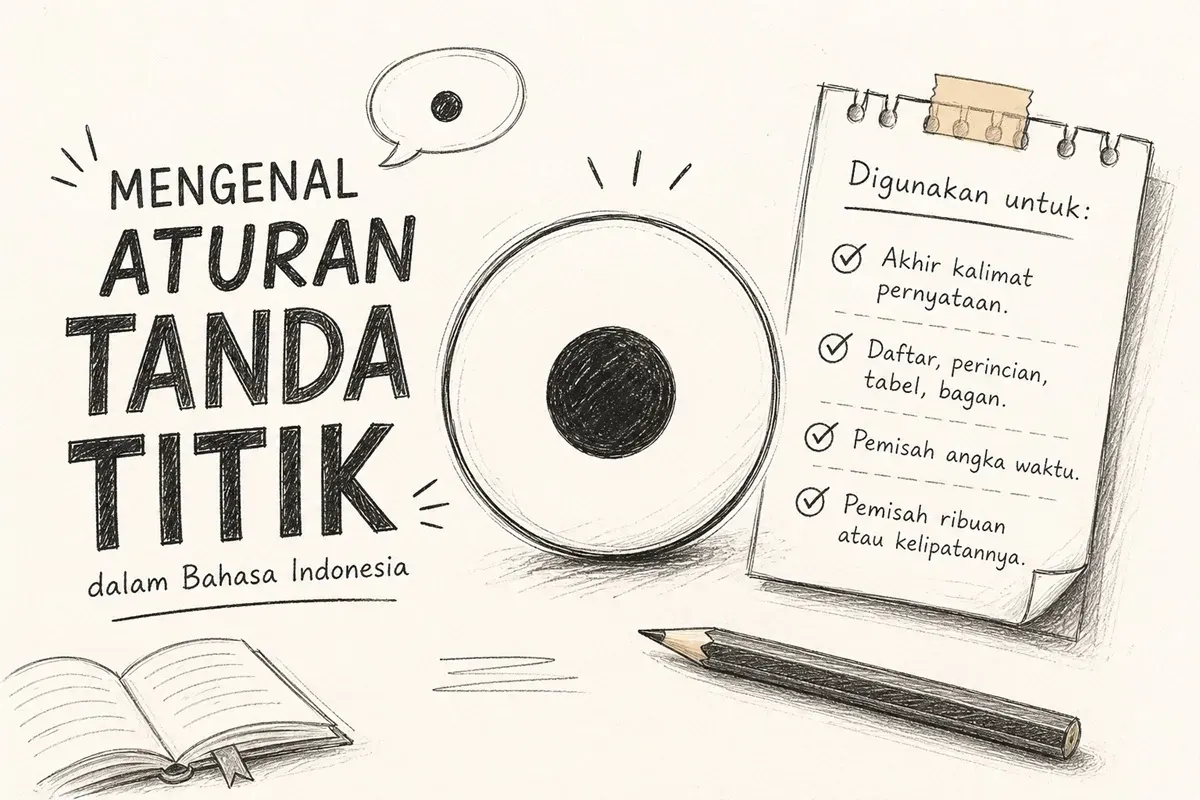 MENGENAL
ATURAN
TANDA
TITIK
dalam Bahasa Indonesia
Digunakan untuk:
Akhir kalimat
pernyataan.
Daftar, perincian,
tabel, bagan.
Pemisah angka waktu.
Pemisah ribuan
atau kelipatannya.